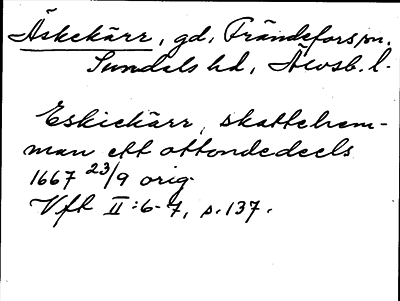 Äskekärr, gd, Frändefors sn.
Sundals hd, Älvsb. l.
Eskiekärr, skattehem-
man ett ottondedeels
1667 23/9 orig.
Vft II:6-7, s. 137.